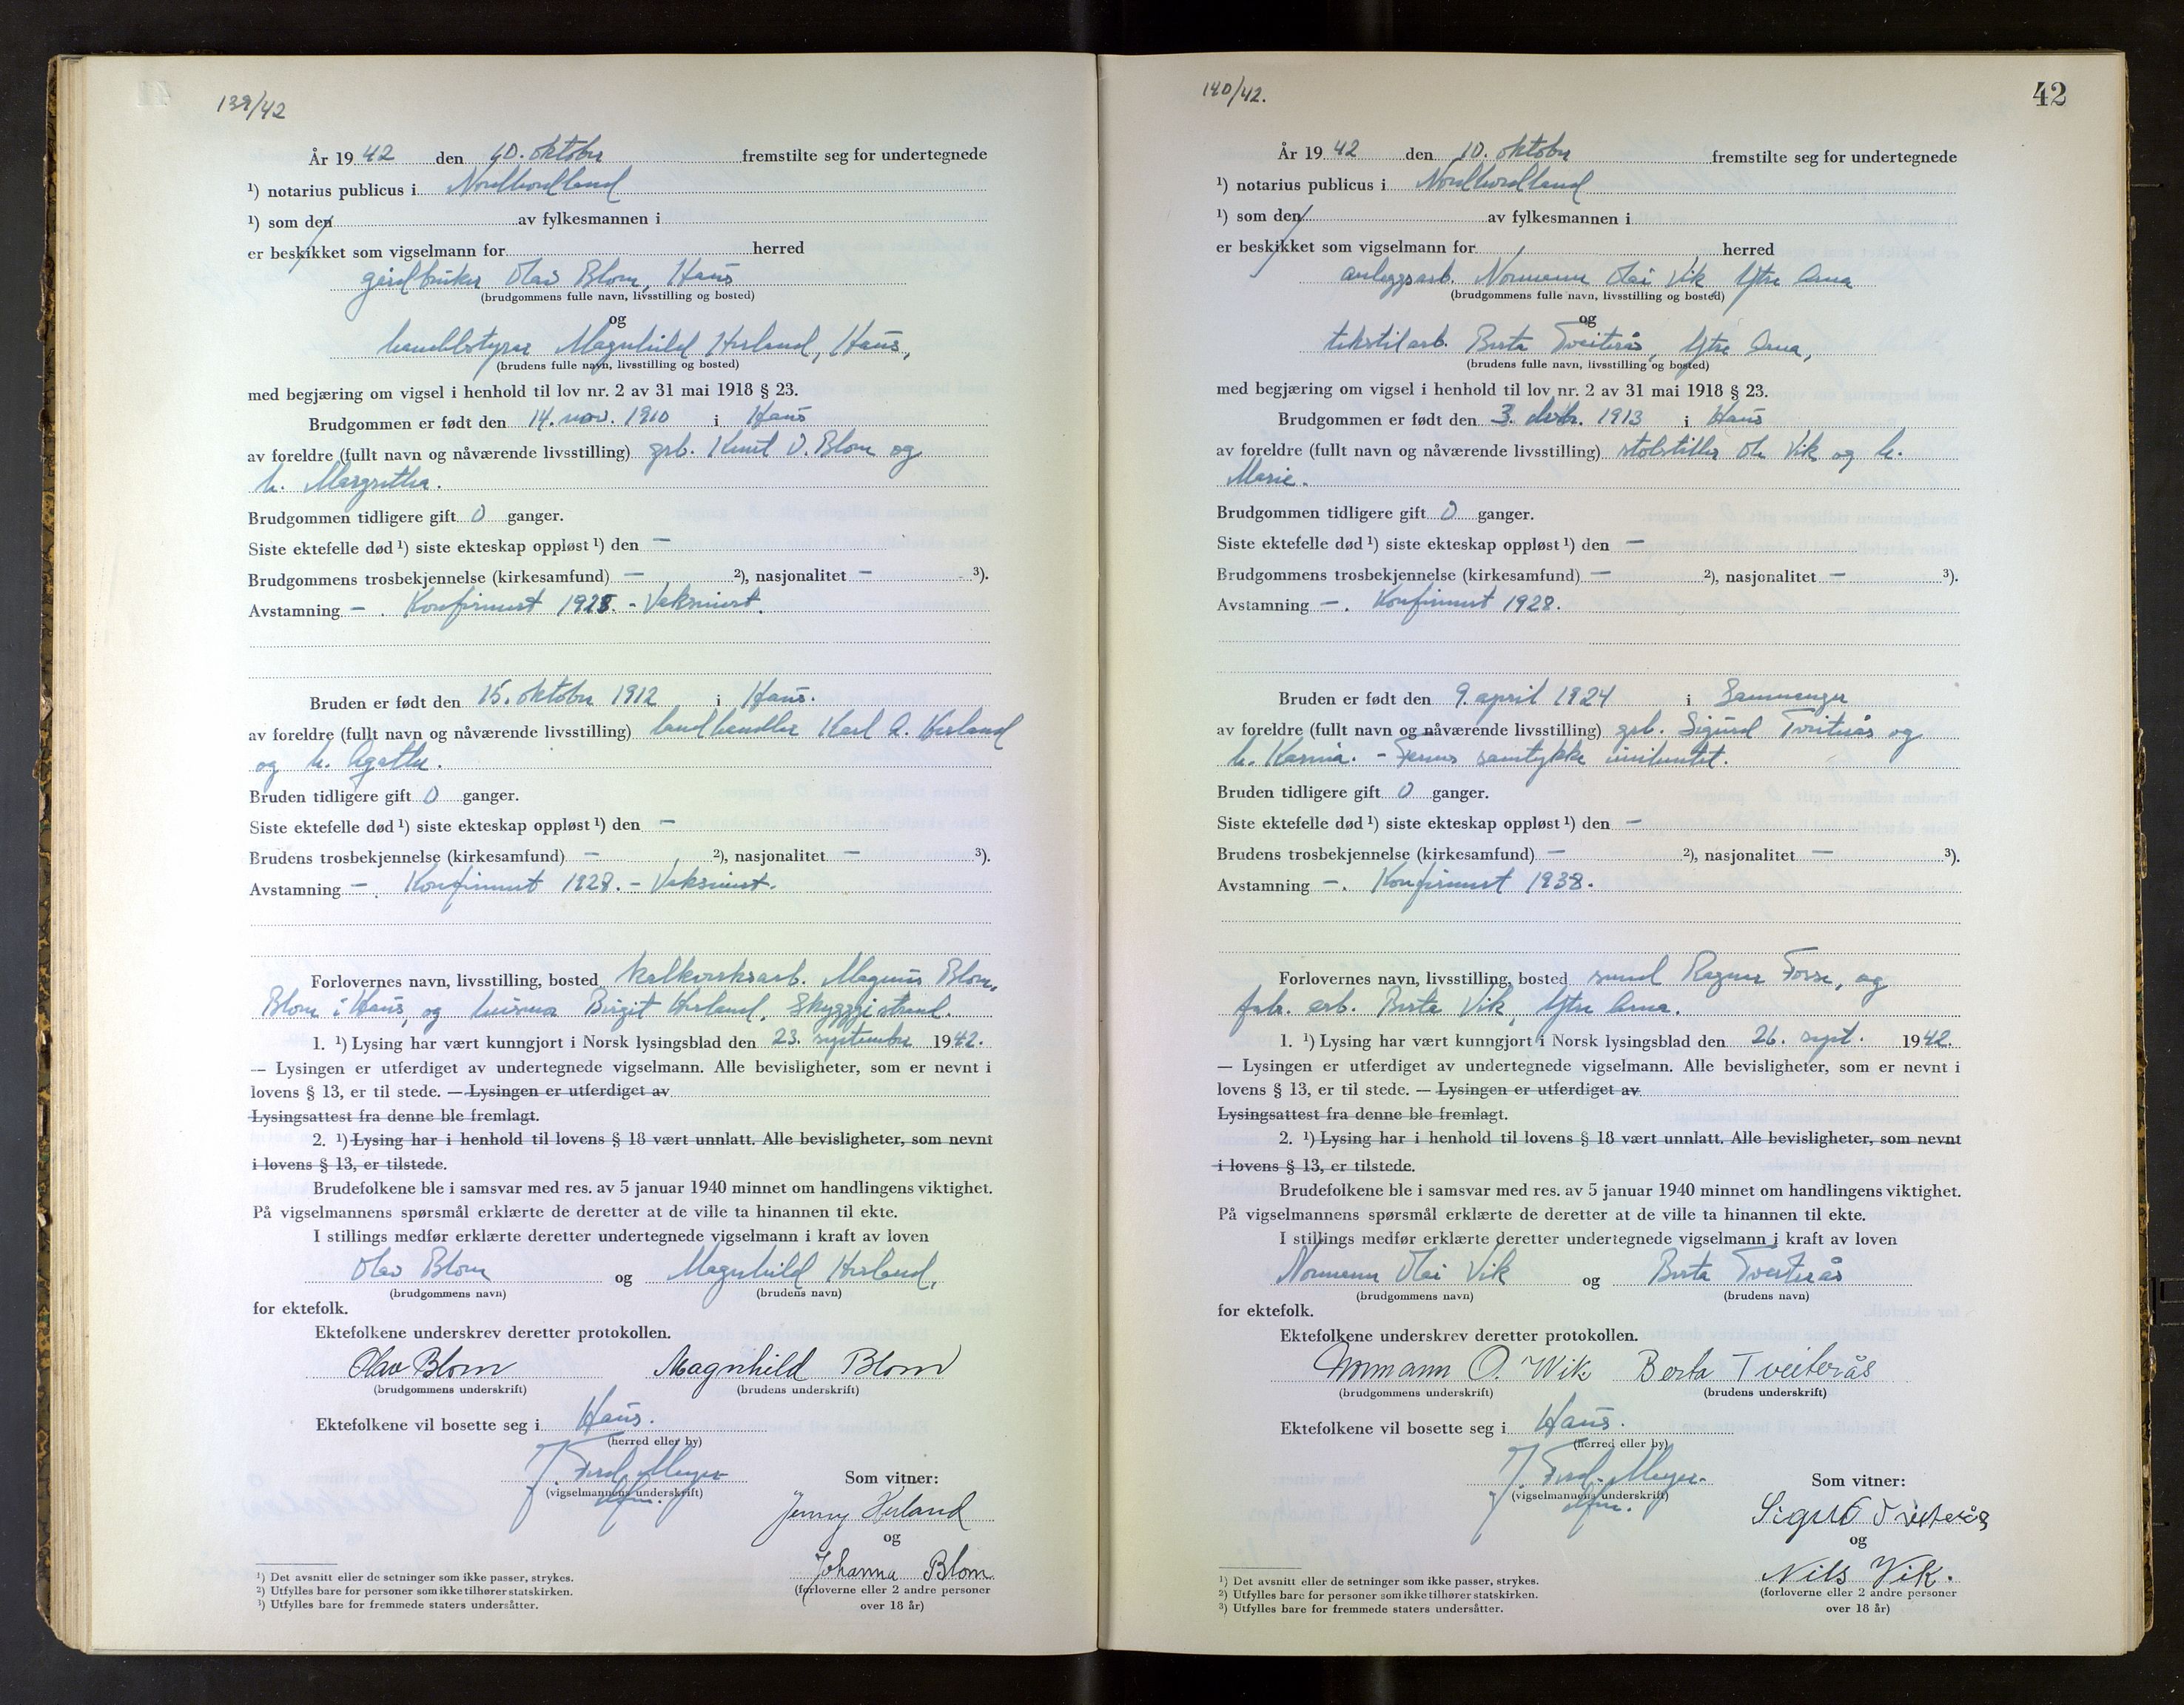 139/42
År 19 42 den 10. oktober fremstilte seg for undertegnede
¹) notarius publicus i Nordhordland
¹) som den av fylkesmannen i
er beskikket som vigselmann for herred
gårdbruker Olav Blom, Haus
(brudgommens fulle navn, livsstilling og bosted)
og
handelsstyrer Magnhild Herland, Haus,
(brudens fulle navn, livsstilling og bosted)
med begjæring om vigsel i henhold til lov nr. 2 av 31 mai 1918 § 23.
Brudgommen er født den 14. nov. 1910 i Haus
av foreldre (fullt navn og nåværende livsstilling) grb. Knut O. Blom og
h. Margretha.
Brudgommen tidligere gift 0 ganger.
Siste ektefelle død ¹) siste ekteskap oppløst ¹) den —
Brudgommens trosbekjennelse (kirkesamfund) — ²), nasjonalitet — ³).
Avstamning — . Konfirmert 1925. - Vaksinert.
Bruden er født den 15. oktober 1912 i Haus.
av foreldre (fullt navn og nåværende livsstilling) landhandler Karl A. Herland
og h. Agathe.
Bruden tidligere gift 0 ganger.
Siste ektefelle død ¹) siste ekteskap oppløst ¹) den —
Brudens trosbekjennelse (kirkesamfund) — ²), nasjonalitet — ³).
Avstamning — . Konfirmert 1928. - Vaksinert.
Forlovernes navn, livsstilling, bosted kalkverksarb. Magnus Blom,
Blom i Haus, og husmor Birgit Herland, Skyggjestrand.
1. ¹) Lysing har vært kunngjort i Norsk lysingsblad den 23. september 1942.
— Lysingen er utferdiget av undertegnede vigselmann. Alle bevisligheter, som er nevnt i
lovens § 13, er til stede. — Lysingen er utferdiget av
Lysingsattest fra denne ble fremlagt.
2. ¹) Lysing har i henhold til lovens § 18 vært unnlatt. Alle bevisligheter, som nevnt
i lovens § 13, er tilstede.
Brudefolkene ble i samsvar med res. av 5 januar 1940 minnet om handlingens viktighet.
På vigselmannens spørsmål erklærte de deretter at de ville ta hinannen til ekte.
I stillings medfør erklærte deretter undertegnede vigselmann i kraft av loven
Olav Blom og Magnhild Herland,
(brudgommens navn) (brudens navn)
for ektefolk.
Ektefolkene underskrev deretter protokollen.
Olav Blom Magnhild Blom
(brudgommens underskrift) (brudens underskrift)
Ektefolkene vil bosette seg i Haus.
(herred eller by)
J. Ferd. Meyer
(vigselmannens underskrift)
Som vitner:
Jenny Herland
og
Johanna Blom
(forloverne eller 2 andre personer
over 18 år)
¹) Det avsnitt eller de setninger som ikke passer, strykes.
²) Utfylles bare for personer som ikke tilhører statskirken.
³) Utfylles bare for fremmede staters undersåtter.
140/42.
42
År 19 42 den 10. oktober fremstilte seg for undertegnede
¹) notarius publicus i Nordhordland
¹) som den av fylkesmannen i
er beskikket som vigselmann for herred
anleggsarb. Normann Olai Vik Ytre Arna
(brudgommens fulle navn, livsstilling og bosted)
og
tekstilarb. Berta Tveiterås, Ytre Arna,
(brudens fulle navn, livsstilling og bosted)
med begjæring om vigsel i henhold til lov nr. 2 av 31 mai 1918 § 23.
Brudgommen er født den 3. debr. 1913 i Haus
av foreldre (fullt navn og nåværende livsstilling) stolstiller Ole Vik og h.
Marie.
Brudgommen tidligere gift 0 ganger.
Siste ektefelle død ¹) siste ekteskap oppløst ¹) den —
Brudgommens trosbekjennelse (kirkesamfund) — ²), nasjonalitet — ³).
Avstamning — . Konfirmert 1928.
Bruden er født den 9. april 1924 i Samnanger
av foreldre (fullt navn og nåværende livsstilling) grb. Sigurd Tveiterås og
h. Karina. - Farens samtykke innhentet.
Bruden tidligere gift 0 ganger.
Siste ektefelle død ¹) siste ekteskap oppløst ¹) den —
Brudens trosbekjennelse (kirkesamfund) — ²), nasjonalitet — ³).
Avstamning — . Konfirmert 1938.
Forlovernes navn, livsstilling, bosted smed Ragnar Fosse, og
fabr. arb. Berta Vik, Ytre Arna.
1. ¹) Lysing har vært kunngjort i Norsk lysingsblad den 26. sept. 1942.
— Lysingen er utferdiget av undertegnede vigselmann. Alle bevisligheter, som er nevnt i
lovens § 13, er til stede. — Lysingen er utferdiget av
Lysingsattest fra denne ble fremlagt.
2. ¹) Lysing har i henhold til lovens § 18 vært unnlatt. Alle bevisligheter, som nevnt
i lovens § 13, er tilstede.
Brudefolkene ble i samsvar med res. av 5 januar 1940 minnet om handlingens viktighet.
På vigselmannens spørsmål erklærte de deretter at de ville ta hinannen til ekte.
I stillings medfør erklærte deretter undertegnede vigselmann i kraft av loven
Normann Olai Vik og Berta Tveiterås
(brudgommens navn) (brudens navn)
for ektefolk.
Ektefolkene underskrev deretter protokollen.
Normann O. Wik Berta Tveiterås
(brudgommens underskrift) (brudens underskrift)
Ektefolkene vil bosette seg i Haus.
(herred eller by)
J. Ferd. Meyer
(vigselmannens underskrift)
Som vitner:
Sigurd Tveiterås
og
Nils Vik.
(forloverne eller 2 andre personer
over 18 år)
¹) Det avsnitt eller de setninger som ikke passer, strykes.
²) Utfylles bare for personer som ikke tilhører statskirken.
³) Utfylles bare for fremmede staters undersåtter.